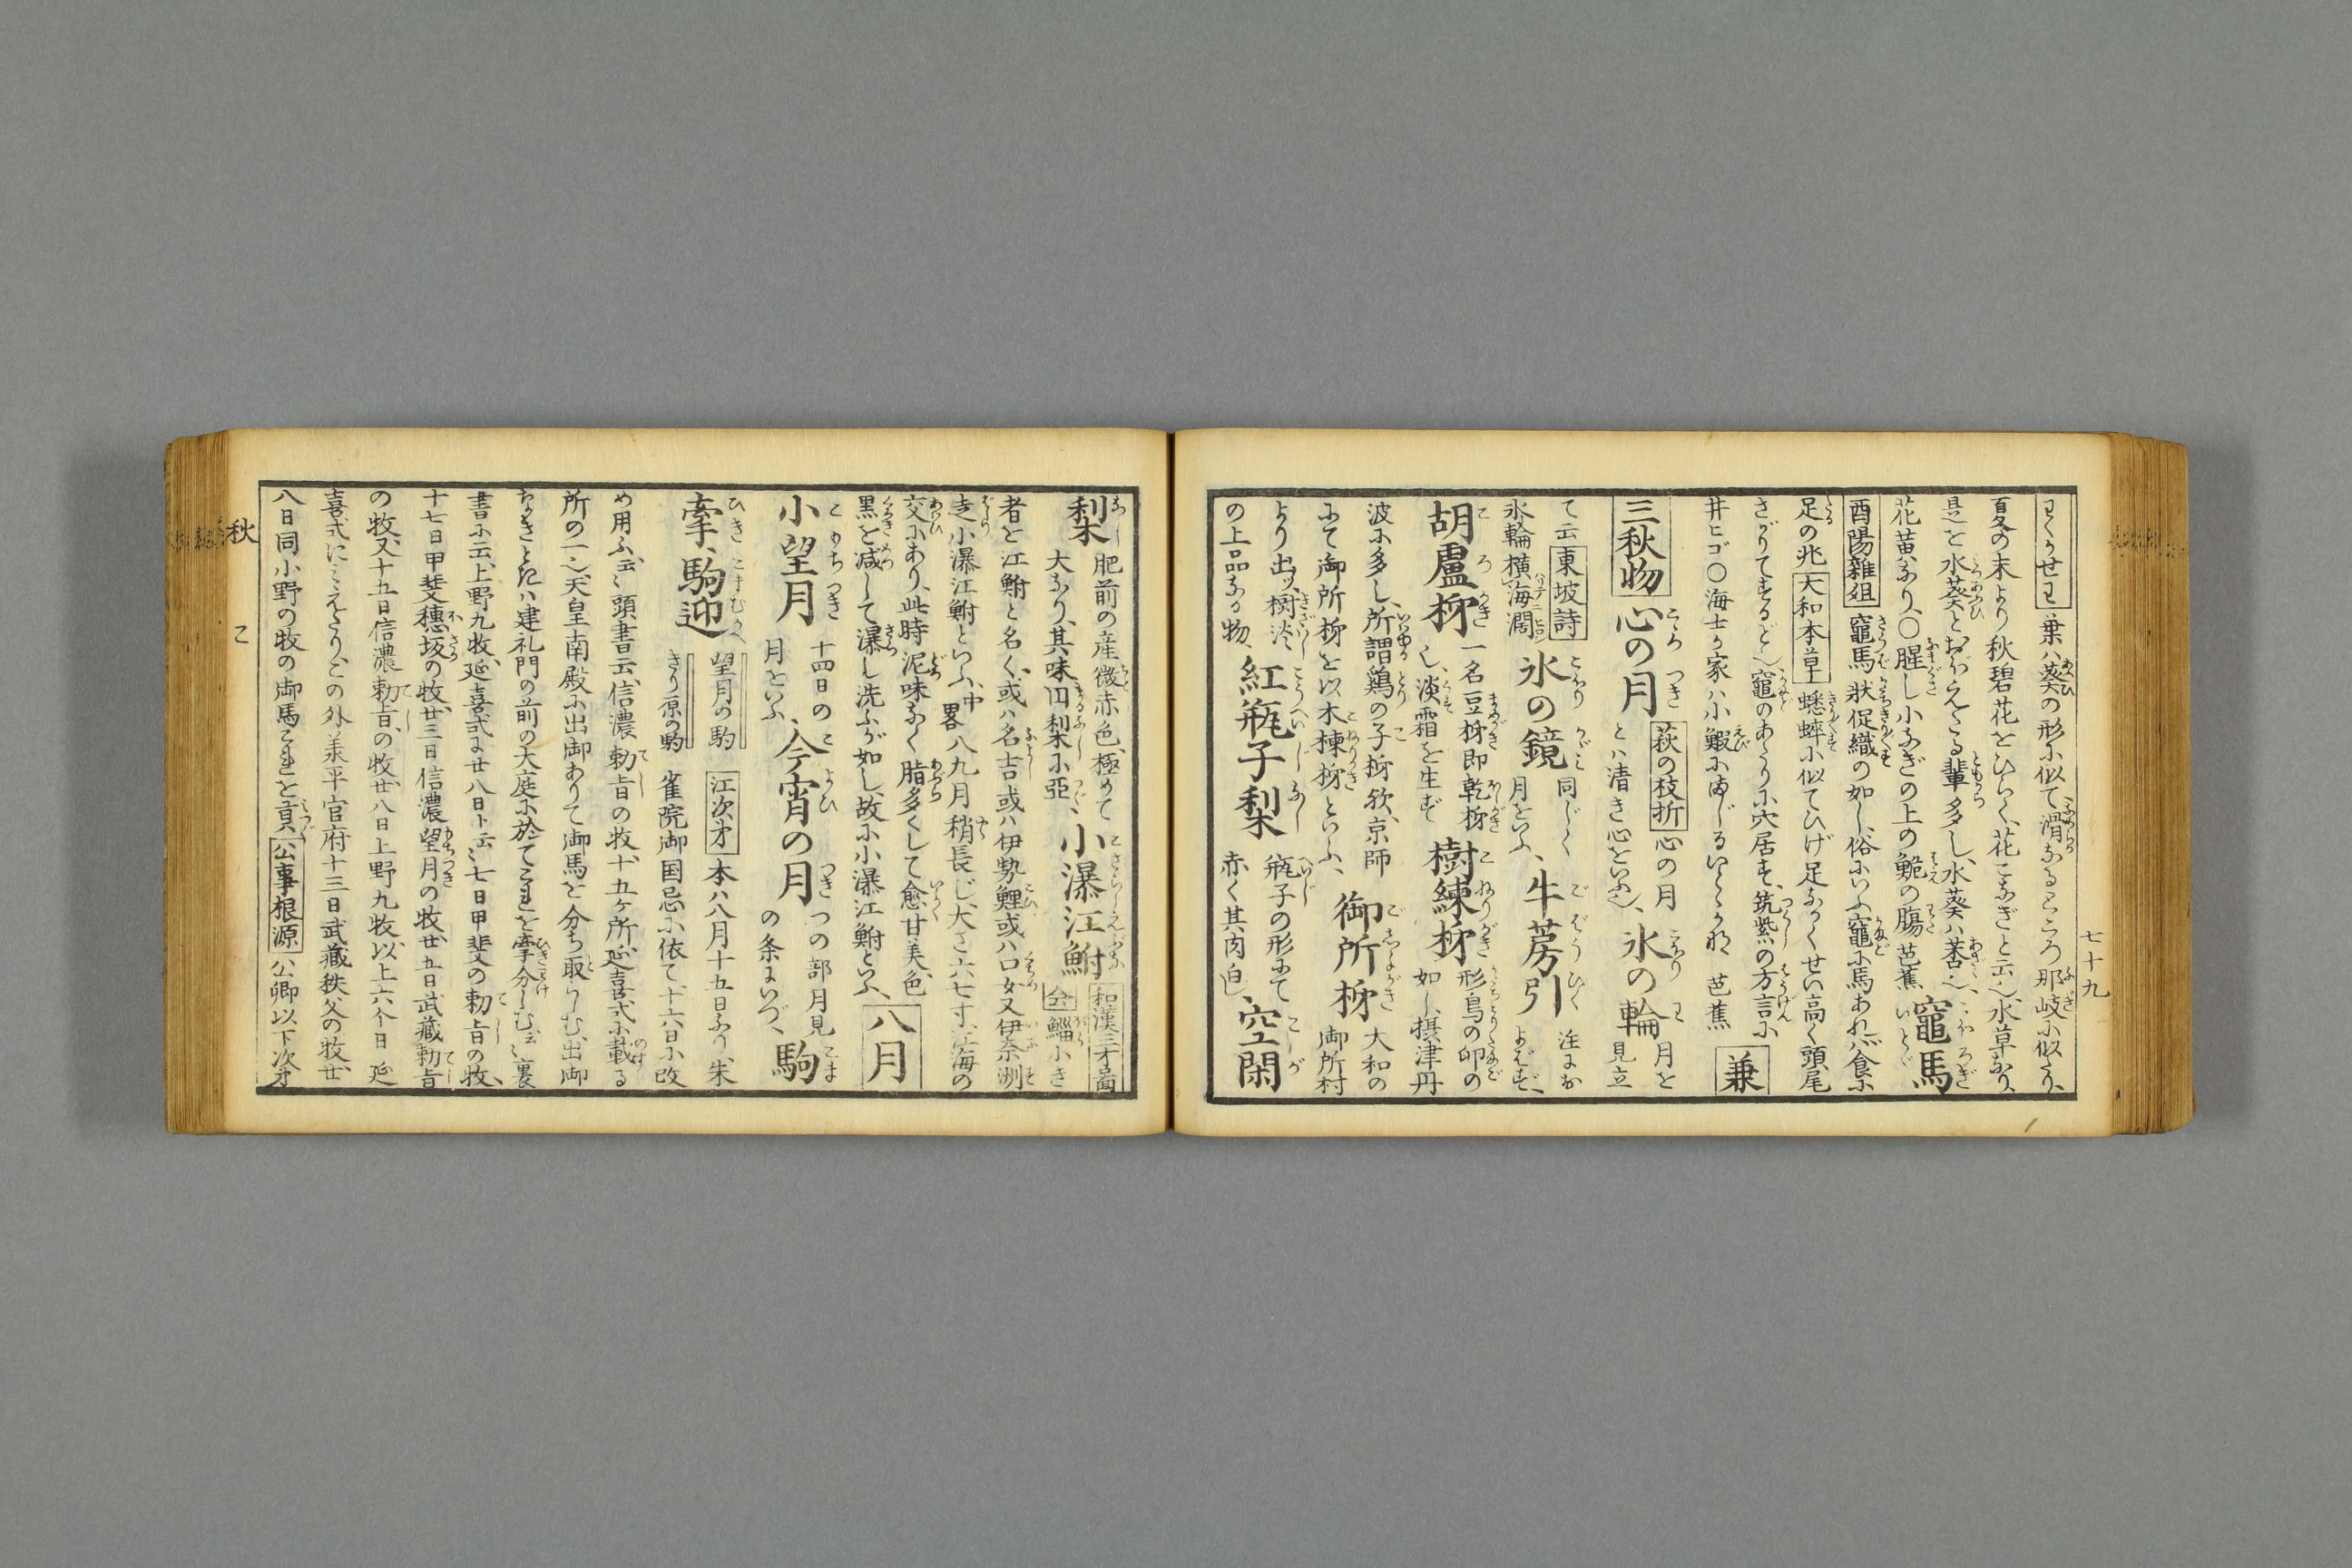 七十九
葉ハ葵の形に似て滑なるところ那岐に似たり、
夏の末より秋碧花をひらく、花こなぎと云、水草なり、
是を水葵とおぼえたる輩多し、水葵ハ荇也、
花黄なり、〇腥し小なぎの上の鮠の膓 芭蕉 竈馬
酉陽雑俎 竈馬状促織の如し、俗にいふ竈に馬あれバ食に
足の兆 大和本草 蟋蟀に似てひげ足ながくせい高く頭尾
さがりてまるし、竈のあたりに穴居す、筑紫の方言に
井ヒゴ〇海士が家ハ小鰕にまじるいとゞかな 芭蕉 兼
三秋物 心の月 萩の枝折 心の月
とハ清き心をいふ、氷の輪 月を見立
て云 東坡詩
氷輪横海濶 氷の鏡 同じく
月をいふ、牛蒡引 注におよばず、
胡盧柹 一名豆柹即乾柹
也、淡霜を生ず 樹練柹 形鳥の卵の
如し、摂津丹
波に多し、所謂鶏の子柹欤、京師
にて御所柹を以木棟柹といふ、御所柹 大和の
御所村
より出ッ、樹淡
の上品なる物、紅瓶子梨 瓶子の形にて
赤く其肉白し、空閑
梨 肥前の産微赤色、極めて
大なり、其味円梨に亞 小瀑江鮒 和漢三才圖
会 鯔小き
者を江鮒と名く、或ハ名吉或ハ伊勢鯉或ハ口女又伊奈洲
走小瀑江鮒といふ、中畧八九月稍長じ、大さ六七寸、江海の
交にあり、此時泥味なく脂多くして愈甘美、色
黒を減して瀑し洗ふが如し、故に小瀑江鮒といふ、八月
小望月 十四日の
月をいふ、今宵の月 つの部月見
の条にいづ、駒
牽、駒迎 望月の駒
きり原の駒 江次才 本ハ八月十五日なり、朱
雀院御国忌に依て、十六日に改
め用ふ云々、頭書云、信濃勅旨の牧、十五ケ所延喜式に載る
所の一也、天皇南殿に出御ありて御馬を分ち取らしむ、出御
なきときハ建礼門の前の大庭に於てこれを牽分しむ云々、裏
書に云、上野九牧、延喜式ニ廿八日ト云々、七日甲斐の勅旨の牧、
十七日甲斐穗坂の牧、廿三日信濃望月の牧、廿五日武蔵勅旨
の牧、又十五日信濃勅旨の牧、廿八日上野九牧、以上六个日延
喜式にミえたり、この外羕平官府十三日武蔵秩父の牧、廿
八日同小野の牧の御馬これを貢 公事根源 公卿以下次才
秋
こ